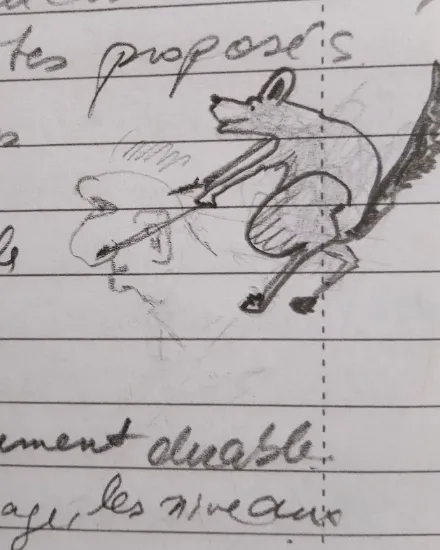 tes proposés
ument durable.
age, les niveaux